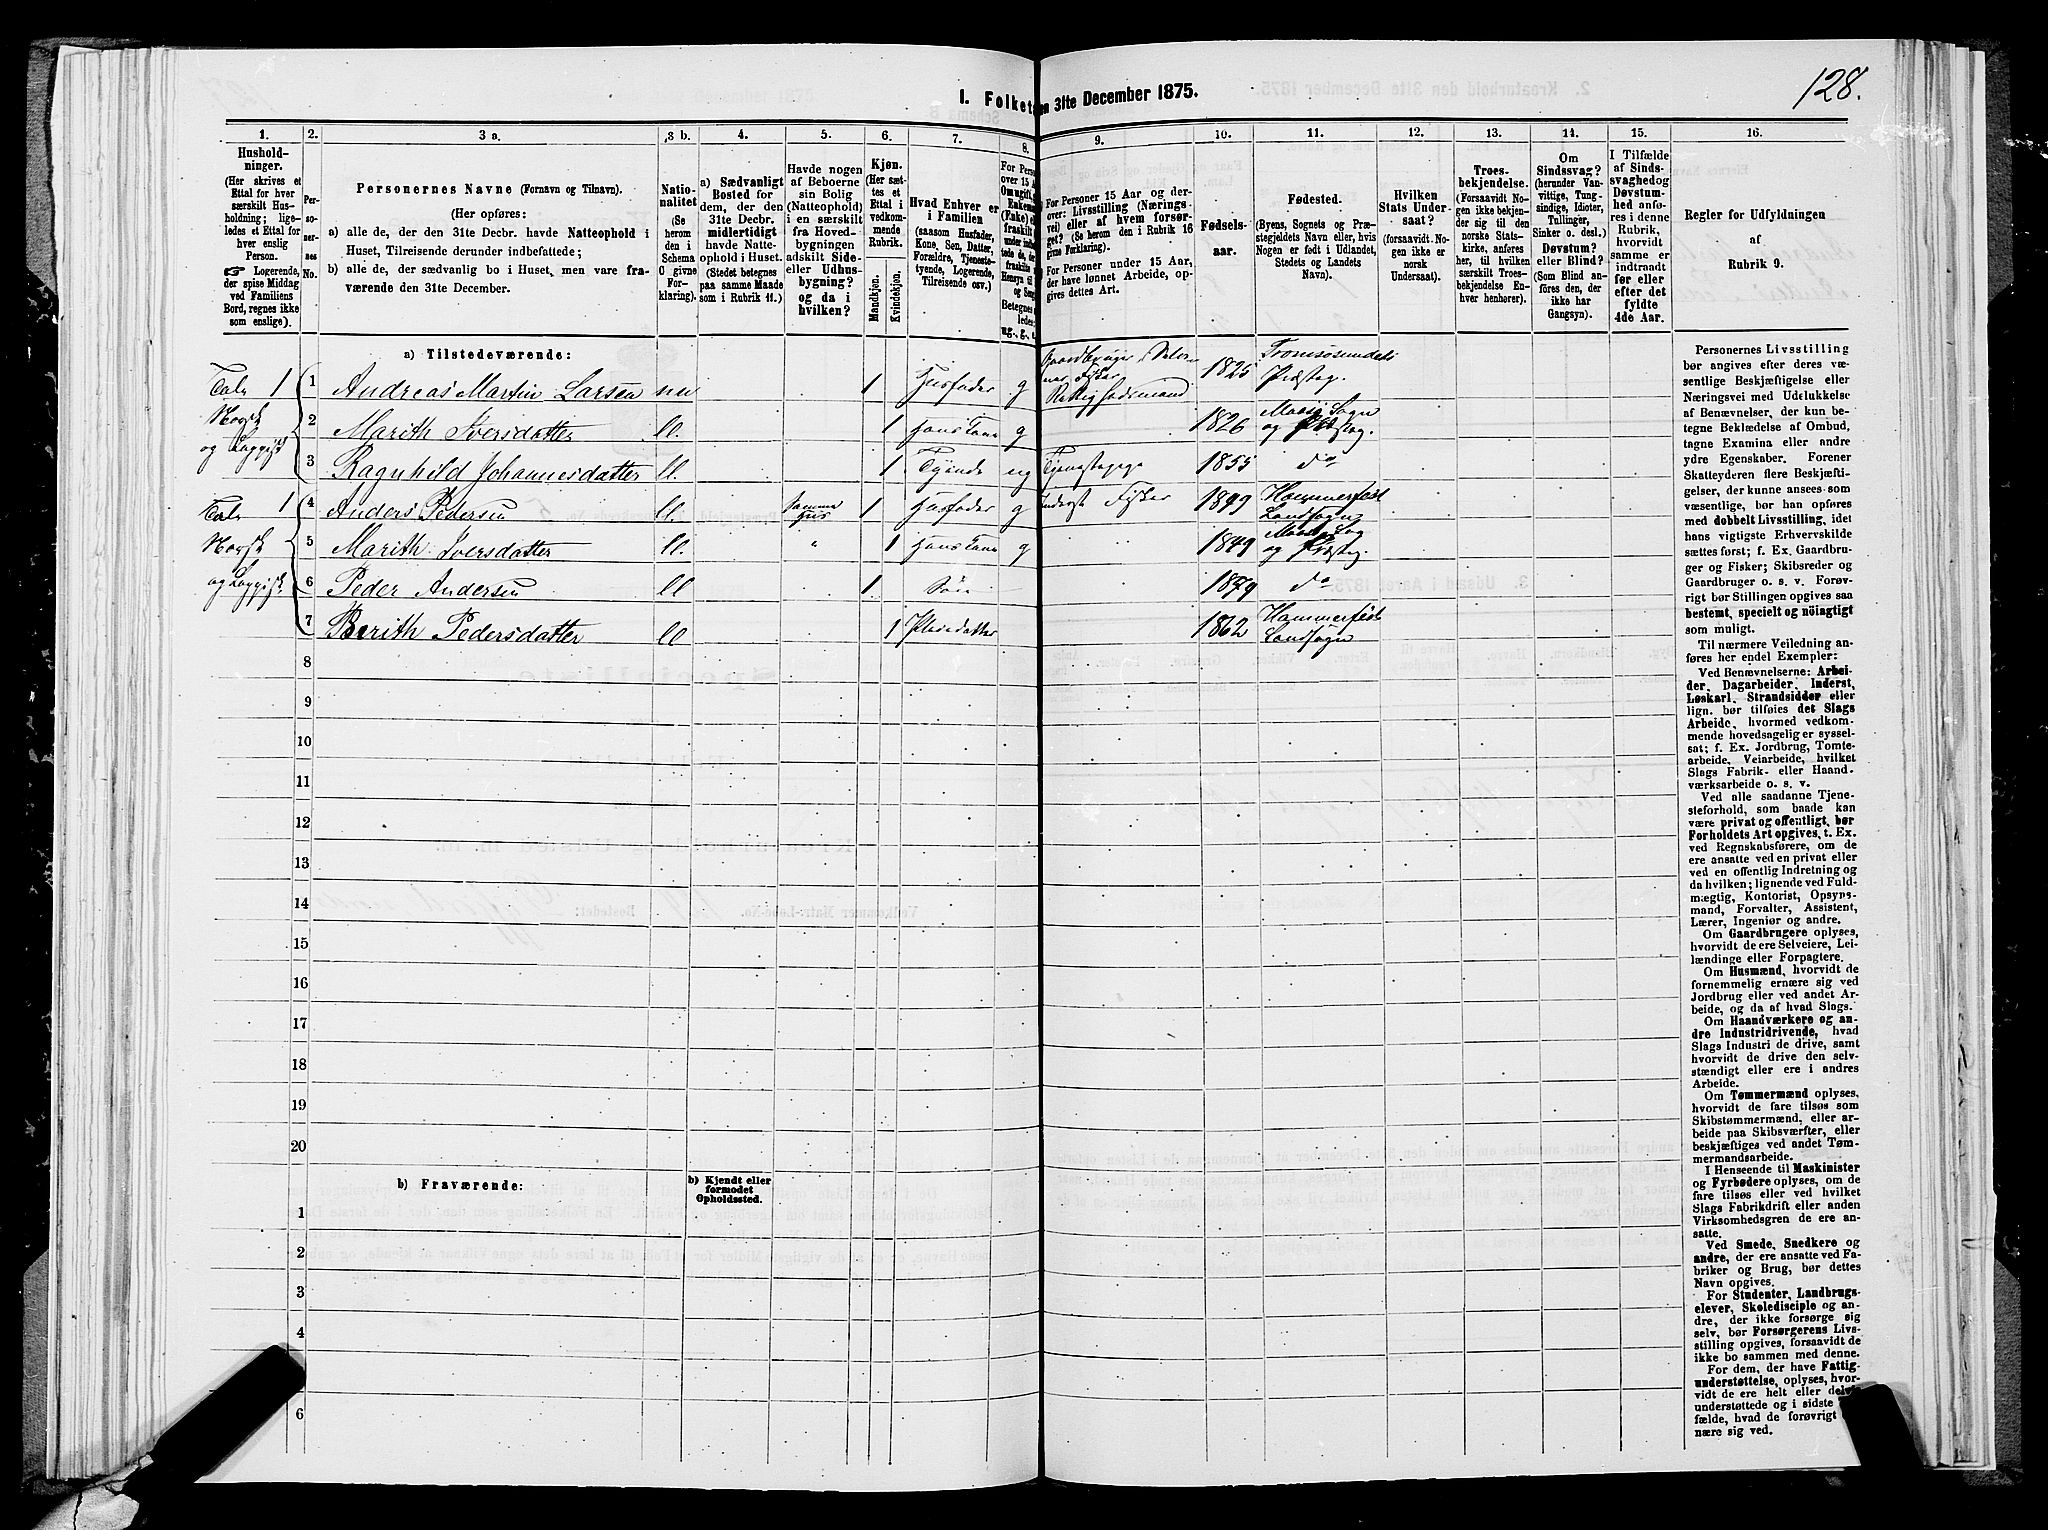 128.
1. Folket en 31te December 1875.
1. 2. 3 a. 3 b. 4. 5. 6. 7. 8. 9. 10. 11. 12. 13. 14. 15. 16.
Hushold-
ninger.
(Her skrives et
Ettal for hver
særskilt Hus-
holdning; lige-
ledes et Ettal for
hver enslig
Person.
☞ Logerende,
der spise Middag
ved Familiens
Bord, regnes ikke
som enslige).
Per-
so-
ner-
nes
No.
Personernes Navne (Fornavn og Tilnavn).
(Her opføres:
a) alle de, der den 31te Decbr. havde Natteophold i
Huset, Tilreisende derunder indbefattede;
b) alle de, der sædvanlig bo i Huset, men vare fra-
værende den 31te December.
Natio-
nalitet
(Se
herom
den i
Schema
C givne
For-
klaring).
a) Sædvanligt
Bosted for
dem, der den
31te Decbr.
midlertidigt
havde Natte-
ophold i Huset.
(Stedet betegnes
paa samme Maade
som i Rubrik 11.)
Havde nogen
af Beboerne
sin Bolig
(Natteophold)
i en særskilt
fra Hoved-
bygningen
adskilt Side-
eller Udhus-
bygning?
og da i
hvilken?
Kjøn.
(Her sæt-
tes et
Ettal i
vedkom-
mende
Rubrik.
Mandkjøn.
Kvindekjøn.
Hvad Enhver er
i Familien
(saasom Husfader,
Kone, Søn, Datter,
Forældre, Tjeneste-
tyende, Logerende,
Tilreisende osv.)
For Personer 15 Aar og der-
over: Livsstilling (Nærings-
vei) eller af hvem forsør-
get? (Se herom den i Rubrik 16
givne Forklaring).
For Personer under 15 Aar,
der have lønnet Arbeide, op-
gives dettes Art.
Fødsels-
aar.
Fødested.
(Byens, Sognets og Præ-
stegjeldets Navn eller, hvis
Nogen er født i Udlandet,
Stedets og Landets
Navn).
Hvilken
Stats Under-
saat?
(forsaavidt No-
gen ikke er
norsk
Undersaat).
Troes-
bekjendelse.
(Forsaavidt No-
gen ikke bekjen-
der sig til den
norske Stats-
kirke, anføres
her, til hvilken
særskilt Troes-
bekjendelse En-
hver henhører).
Om
Sindssvag?
(herunder Van-
vittige, Tung-
sindige, Idioter,
Tullinger,
Sinker o. desl.)
Døvstum?
eller Blind?
(Som Blind an-
føres den, der
ikke har
Gangsyn).
I Tilfælde
af Sinds-
svaghed og
Døvstum-
hed anfø-
res i denne
Rubrik,
hvorvidt
samme er
indtraadt
før eller
efter det
fyldte
4de Aar.
Regler for Udfyldningen
af
Rubrik 9.
a) Tilstedeværende:
Tale 1 1 Andreas Martin Larsen nn 1 Husfader g Gaardbruger Selvei- 1825 Tromsøsundets
Præsteg.
Norsk 2 Marith Iversdatter ll. 1 Hans Kone g 1826 Maasø Sogn
og Præsteg.
og Lappisk 3 Ragnhild Johannesdatter ll. 1 ug Tjenestepige 1855 do
Tale 1 4 Anders Pedersen ll. Samme
Hus 1 Husfader g Inderst Fisker 1849 Hammerfest
Landsogn
Norsk 5 Marith Iversdatter ll. " 1 Hans Kone g 1849 Maasø Sog
og Præsteg.
og Lappisk 6 Peder Andersen ll 1 Søn do
7 Berith Pedersdatter ll 1 Pleiedatter 1862 Hammerfest
Landsogn
8
9
10
11
12
13
14
15
16
17
18
19
20
b) Fraværende:
b) Kjendt eller
formodet
Opholdssted.
1
2
3
4
5
6
Personernes Livsstilling
bør angives efter deres væ-
sentlige Beskjæftigelse eller
Næringsvei med Udelukkelse
af Benævnelser, der kun be-
tegne Beklædelse af Ombud,
tagne Examina eller andre
ydre Egenskaber. Forener
Skatteyderen flere Beskjæfti-
gelser, der kunne ansees som
væsentlige, bør han opføres
med dobbelt Livsstilling, idet
hans vigtigste Erhvervskilde
sættes først; f. Ex. Gaardbru-
ger og Fisker; Skibsreder og
Gaardbruger o. s. v. Forøv-
rigt bør Stillingen opgives saa
bestemt, specielt og nöiagtigt
som muligt.
Til nærmere Veiledning an-
føres her endel Exempler:
Ved Benævnelserne: Arbei-
der, Dagarbeider, Inderst,
Løskarl, Strandsidder eller
lign. bør tilføies det Slags
Arbeide, hvormed vedkom-
mende hovedsagelig er syssel-
sat; f. Ex. Jordbrug, Tomte-
arbeide, Veiarbeide, hvilket
Slags Fabrik- eller Haand-
værksarbeide o. s. v.
Ved alle saadanne Tjene-
steforhold, som baade kan
være privat og offentligt, bør
Forholdets Art opgives, t. Ex.
ved Regnskabsførere, om de
ere ansatte ved en privat eller
ved en offentlig Indretning og
da hvilken; lignende ved Fuld-
mægtig, Kontorist, Opsyns-
mand, Forvalter, Assistent,
Lærer, Ingeniør og andre.
Om Gaardbrugere oplyses,
hvorvidt de ere Selveiere, Lei-
lændinge eller Forpagtere.
Om Husmænd, hvorvidt de
fornemmelig ernære sig ved
Jordbrug eller ved andet Ar-
beide, og da af hvad Slags.
Om Haandværkere og an-
dre Industridrivende, hvad
Slags Industri de drive, samt
hvorvidt de drive den selv-
stændigt eller ere i andres
Arbeide.
Om Tømmermænd oplyses,
hvorvidt de fare tilsøs som
Skibstømmermænd, eller ar-
beide paa Skibsværfter, eller
beskjæftiges ved andet Tøm-
mermandsarbeide.
I Henseende til Maskinister
og Fyrbødere oplyses, om de
fare tilsøs eller ved hvilket
Slags Fabrikdrift eller anden
Virksomhedsgren de ere an-
satte.
Ved Smede, Snedkere og
andre, der ere ansatte ved Fa-
briker og Brug, bør dettes
Navn opgives.
For Studenter, Landbrugs-
elever, Skoledisciple og an-
dre, der ikke forsørge sig
selv, bør Forsørgerens Livs-
stilling opgives, forsaavidt de
ikke bo sammen med denne.
For dem, der have Fattig-
understøttelse, oplyses, hvor-
vidt de ere helt eller delvis
understøttede og i sidste
fælde, hvad de forøvrigt
nære sig ved.